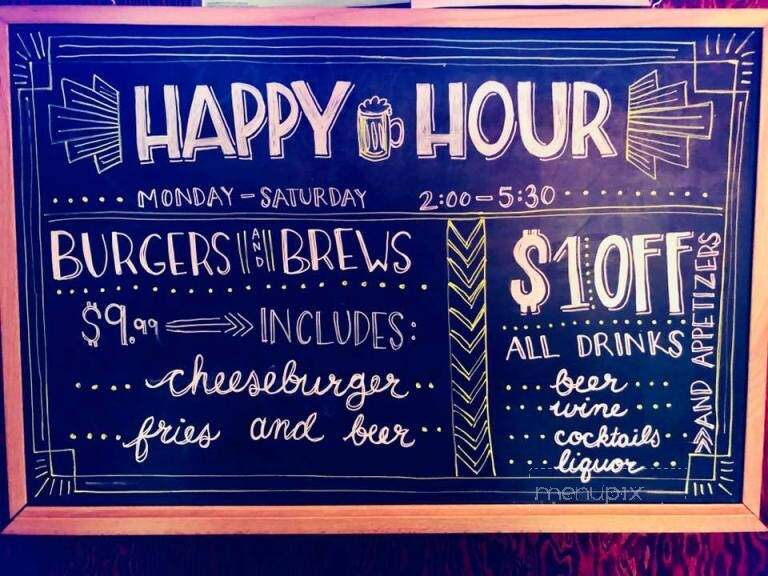 HAPPY HOUR
MONDAY - SATURDAY 2:00 - 5:30
BURGERS AND BREWS
$9.99 INCLUDES:
cheeseburger
fries and beer
$1 OFF
ALL DRINKS
beer
wine
cocktails
liquor
AND APPETIZERS
menupix